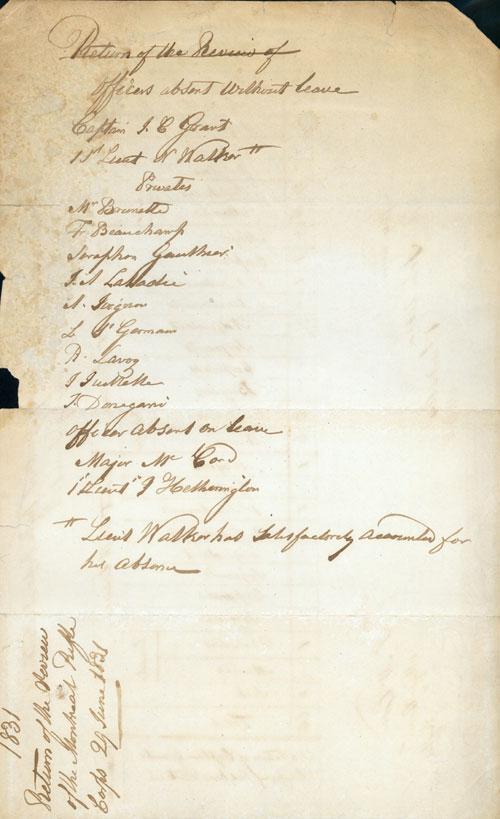 Return of the Review of
Officers absent without leave
Captain J. C Grant
1st Lieut W Walker "
Privates
Mr Brunette
F. Beauchamp
Seraphon Gauthier
J. A Labadie
A.
L St Germain
D. Lavoy
J
J. Donegani
Officer absent on leave
Major Mc Cord
1st Lieut J Hetherington
" Lieut Walker has satisfactorily accounted for
his absence
1831
Return of the Review
of the Montreal Rifle
Corps 29 June 1831